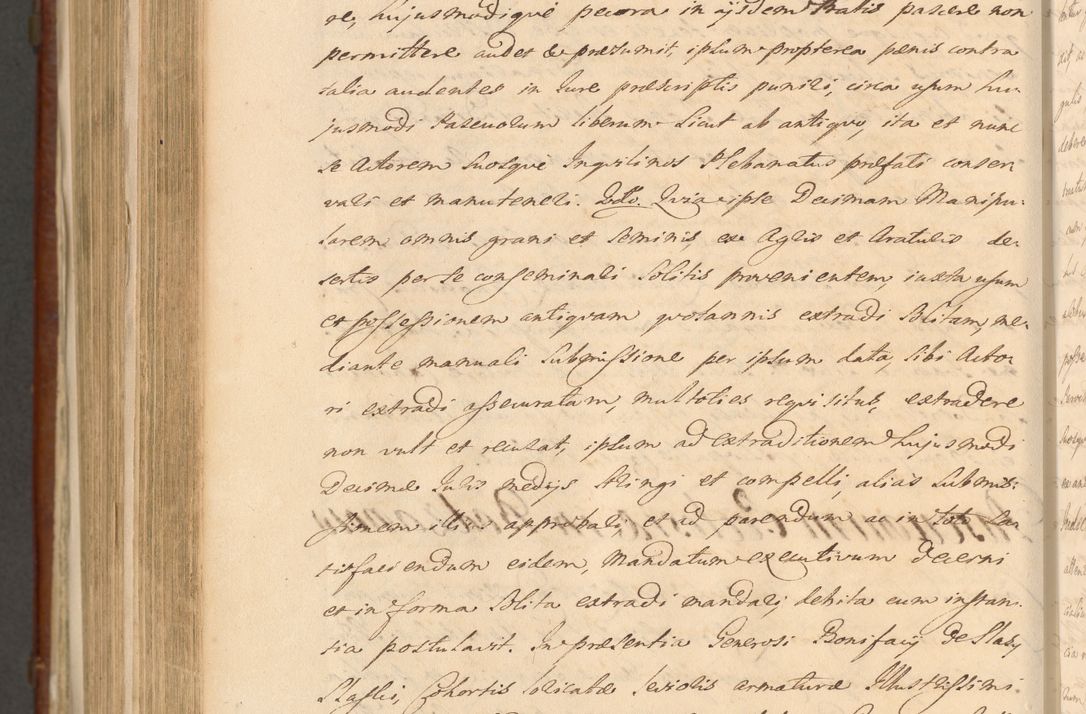 re, hujusmodique pecora in ijsdem Pratis pascere non
permittere audet & præsumit, ipsum propterea pœnis contra
talia audentes in Jure præscriptis puniri, circa usum hu-
jusmodi Pascuorum liberum sicut ab antiquo, ita et nunc
se Actorem suosque Inquilinos Plebanatus præfati conser
vari et manuteneri. 2do. Quia ipse Decimam Manipu-
larem omnis grani et seminis ex Agris et Aratulis de-
sertis per se conseminari solitis provenientem, iuxta usum
et possessionem antiquam quotannis extradi solitam me-
diante manuali submissione per ipsum data, sibi Acto-
ri extradi assecuratam, multoties requisitus, extradere
non vult et recusat, ipsum ad extraditionem hujusmodi
Decimæ Juris medijs stringi et compelli, alias submis-
sionem illius approbari, et ad parendum ac in toto sa-
tisfaciendum eidem, Mandatum executivum decerni
et in forma solita extradi mandari, debita cum instan-
tia postulavit. In præsentia Generosi Bonifacij de Slasy
Slaski, Cohortis loricatæ levioris armaturæ Illustrissimi